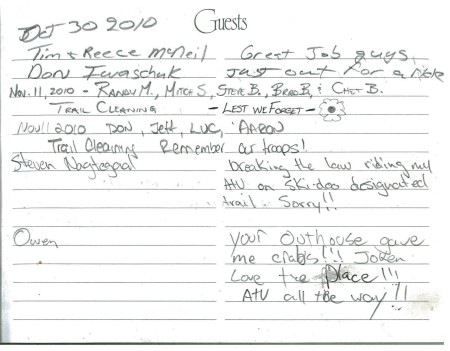 Guests
Oct 30 2010
Tim & Reece McNeil Great Job guys,
Don Iwaschuk Just out for a ride
Nov. 11, 2010 - Randy M., Mitch S, Steve B., Brad B, & Chet B.
Trail Cleaning - Lest we Forget -
Nov 11 2010 Don, Jeff, Luc, Aaron
Trail Cleaning Remember our troops!
Steven Nagtegaal breaking the law riding my
Atu on Ski-doo designated
trail. Sorry!!
Owen your Outhouse gave
me crabs!!! Joken
Love the Place!!!
Atu all the way!!